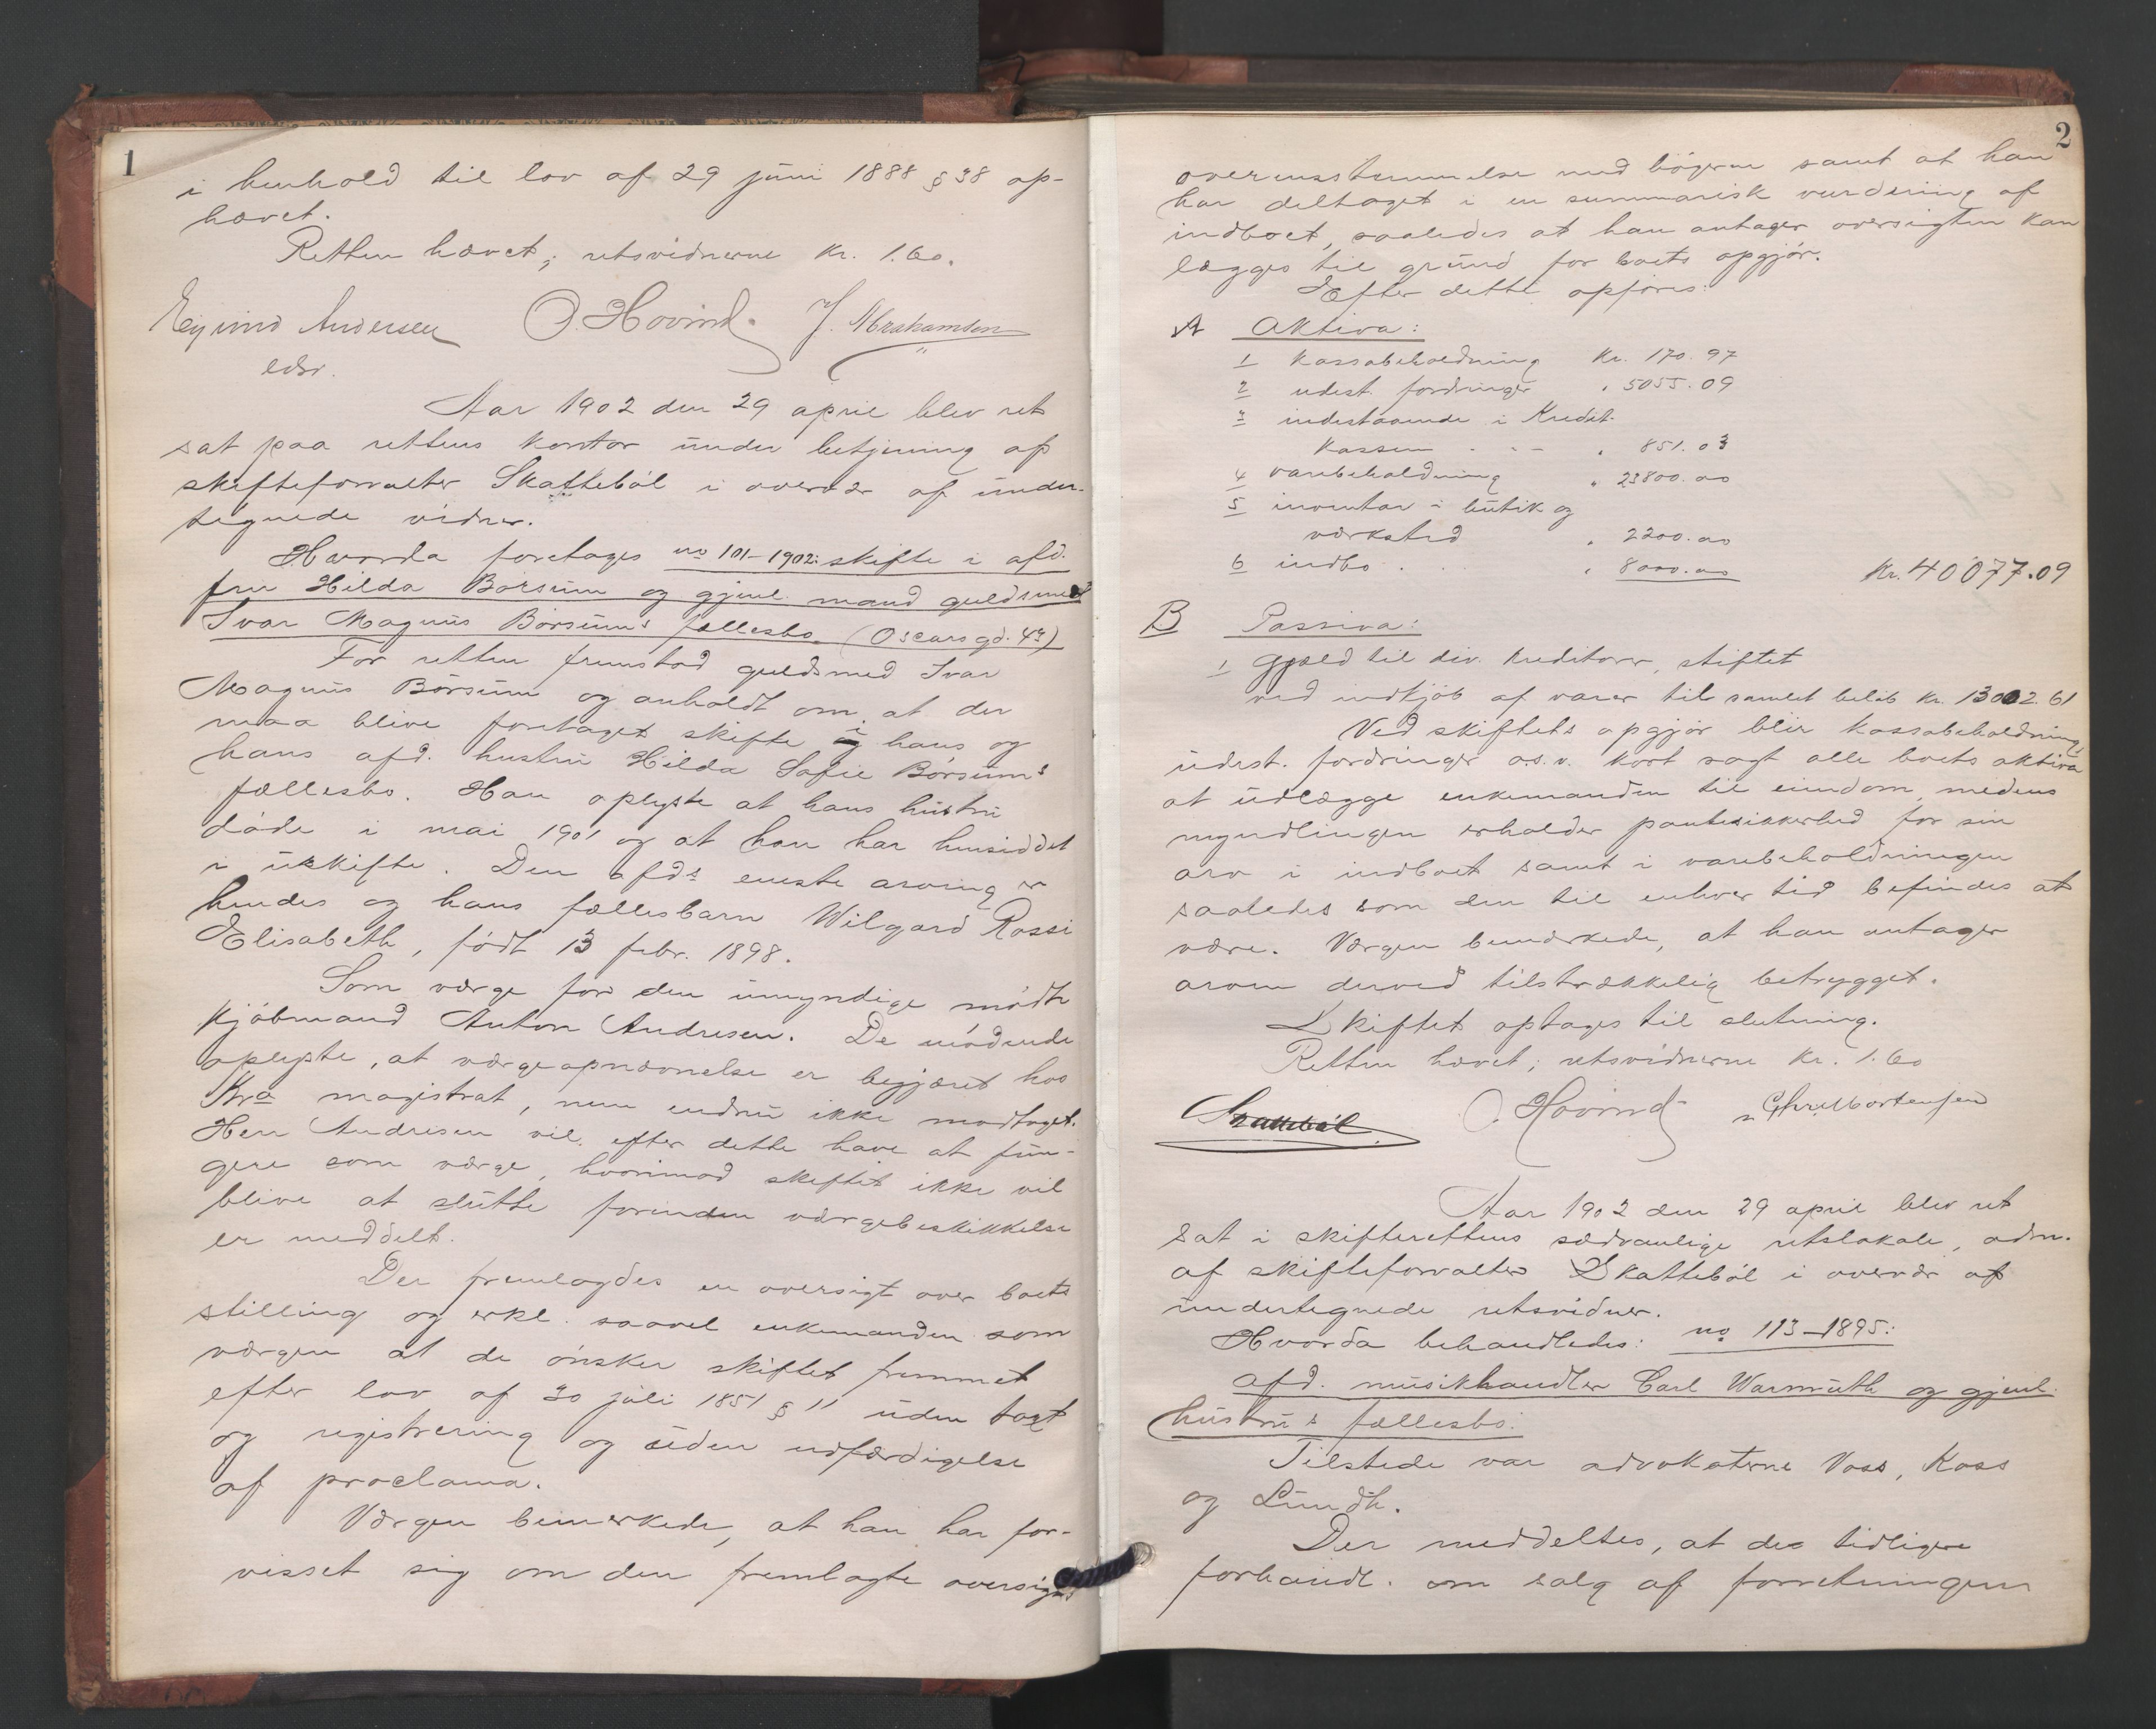 1
i henhold til lov af 29 juni 1888 § 38 op-
hævet.
Retten hævet; retsvidnerne kr. 1.60.
Eyvind Andersen O. Hovind. J. Abrahamsen
edsv.
Aar 1902 den 29 april blev ret
sat paa rettens kontor under betjening af
skifteforvalter Skattebøl i overvær af under-
tegnede vidner.
Hvorda foretages no 101-1902: skifte i afd.
fru Hilda Børsum og gjenl. mand guldsmed
Ivar Magnus Børsums fællesbo. (Oscarsgd. 43)
For retten fremstod guldsmed Ivar
Magnus Børsum og anholdt om, at der
maa blive foretaget skifte i hans og
hans afd. hustru Hilda Sofie Børsums
fællesbo. Han oplyste at hans hustru
døde i mai 1901 og at han har hensiddet
i uskifte. Den afds eneste arving er
hendes og hans fællesbarn Wilgard Rossi
Elisabeth, født 13 febr. 1898.
Som værge for den umyndige mødte
kjøbmand Anton Andresen. De mødende
oplyste, at værgeopnævnelse er begjæret hos
Kra magistrat, men endnu ikke modtaget.
Herr Andresen vil efter dette have at fun-
gere som værge, hvorimod skiftet ikke vil
blive at slutte forinden værgebeskikkelse
er meddelt.
Der fremlagdes en oversigt over boets
stilling og erkl. saavel enkemanden som
værgen at de ønsker skiftet fremmet
efter lov af 30 juli 1851 § 11 uden taxt
og registrering og uden udfærdigelse
af proclama.
Værgen bemerkede, at han har for-
visset sig om den fremlagte oversigts
2
overensstemmelse med bøgerne samt at han
har deltaget i en summarisk vurdering af
indboet, saaledes at han antager oversigten kan
lægges til grund for boets opgjør.
Efter dette opføres:
A Aktiva:
1 kassabeholdning Kr. 170.97
2 udest. fordringer " 5055.09
3 indestaaende i Kredit-
kassen - - - " 851.03
4 varebeholdning " 23800.00
5 inventar i butik og
værksted " 2200.00
6 indbo . . " 8000.00 Kr. 40077.09
B Passiva:
1 gjæld til div. kreditorer, stiftet
ved indkjøb af varer til samlet beløb Kr. 13002.61
Ved skiftets opgjør blir kassabeholdning,
udest. fordringer o.s.v. kort sagt alle boets aktiva
at udlægge enkemanden til eiendom, medens
myndlingen erholder pantesikkerhed for sin
arv i indboet samt i varebeholdningen
saaledes som den til enhver tid befindes at
være. Værgen bemærkede, at han antager
arven derved tilstrækkelig betrygget.
Skiftet optages til slutning.
Retten hævet; retsvidnerne Kr. 1.60
Skattebøl. O. Hovind Chr. Mortensen
Aar 1902 den 29 april blev ret
sat i skifterettens sædvanlige retslokale, adm.
af skifteforvalter Skattebøl i overvær af
undertegnede retsvidner.
Hvorda behandledes: no 113-1895:
afd. musikhandler Carl Warmuth og gjenl.
hustru's fællesbo.
Tilstede var advokaterne Voss, Koss
og Lundh.
Der meddeltes, at de tidligere
forhandl. om salg af forretningen